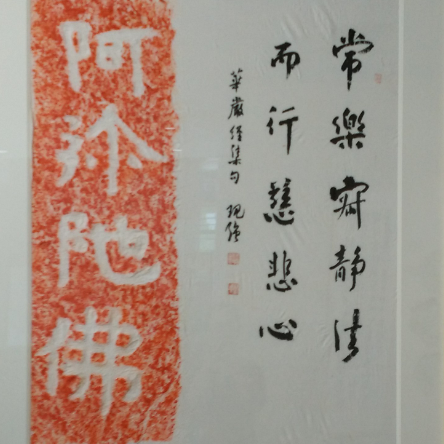 常樂寂靜法
而行慈悲心
華嚴經集句
阿彌陀佛